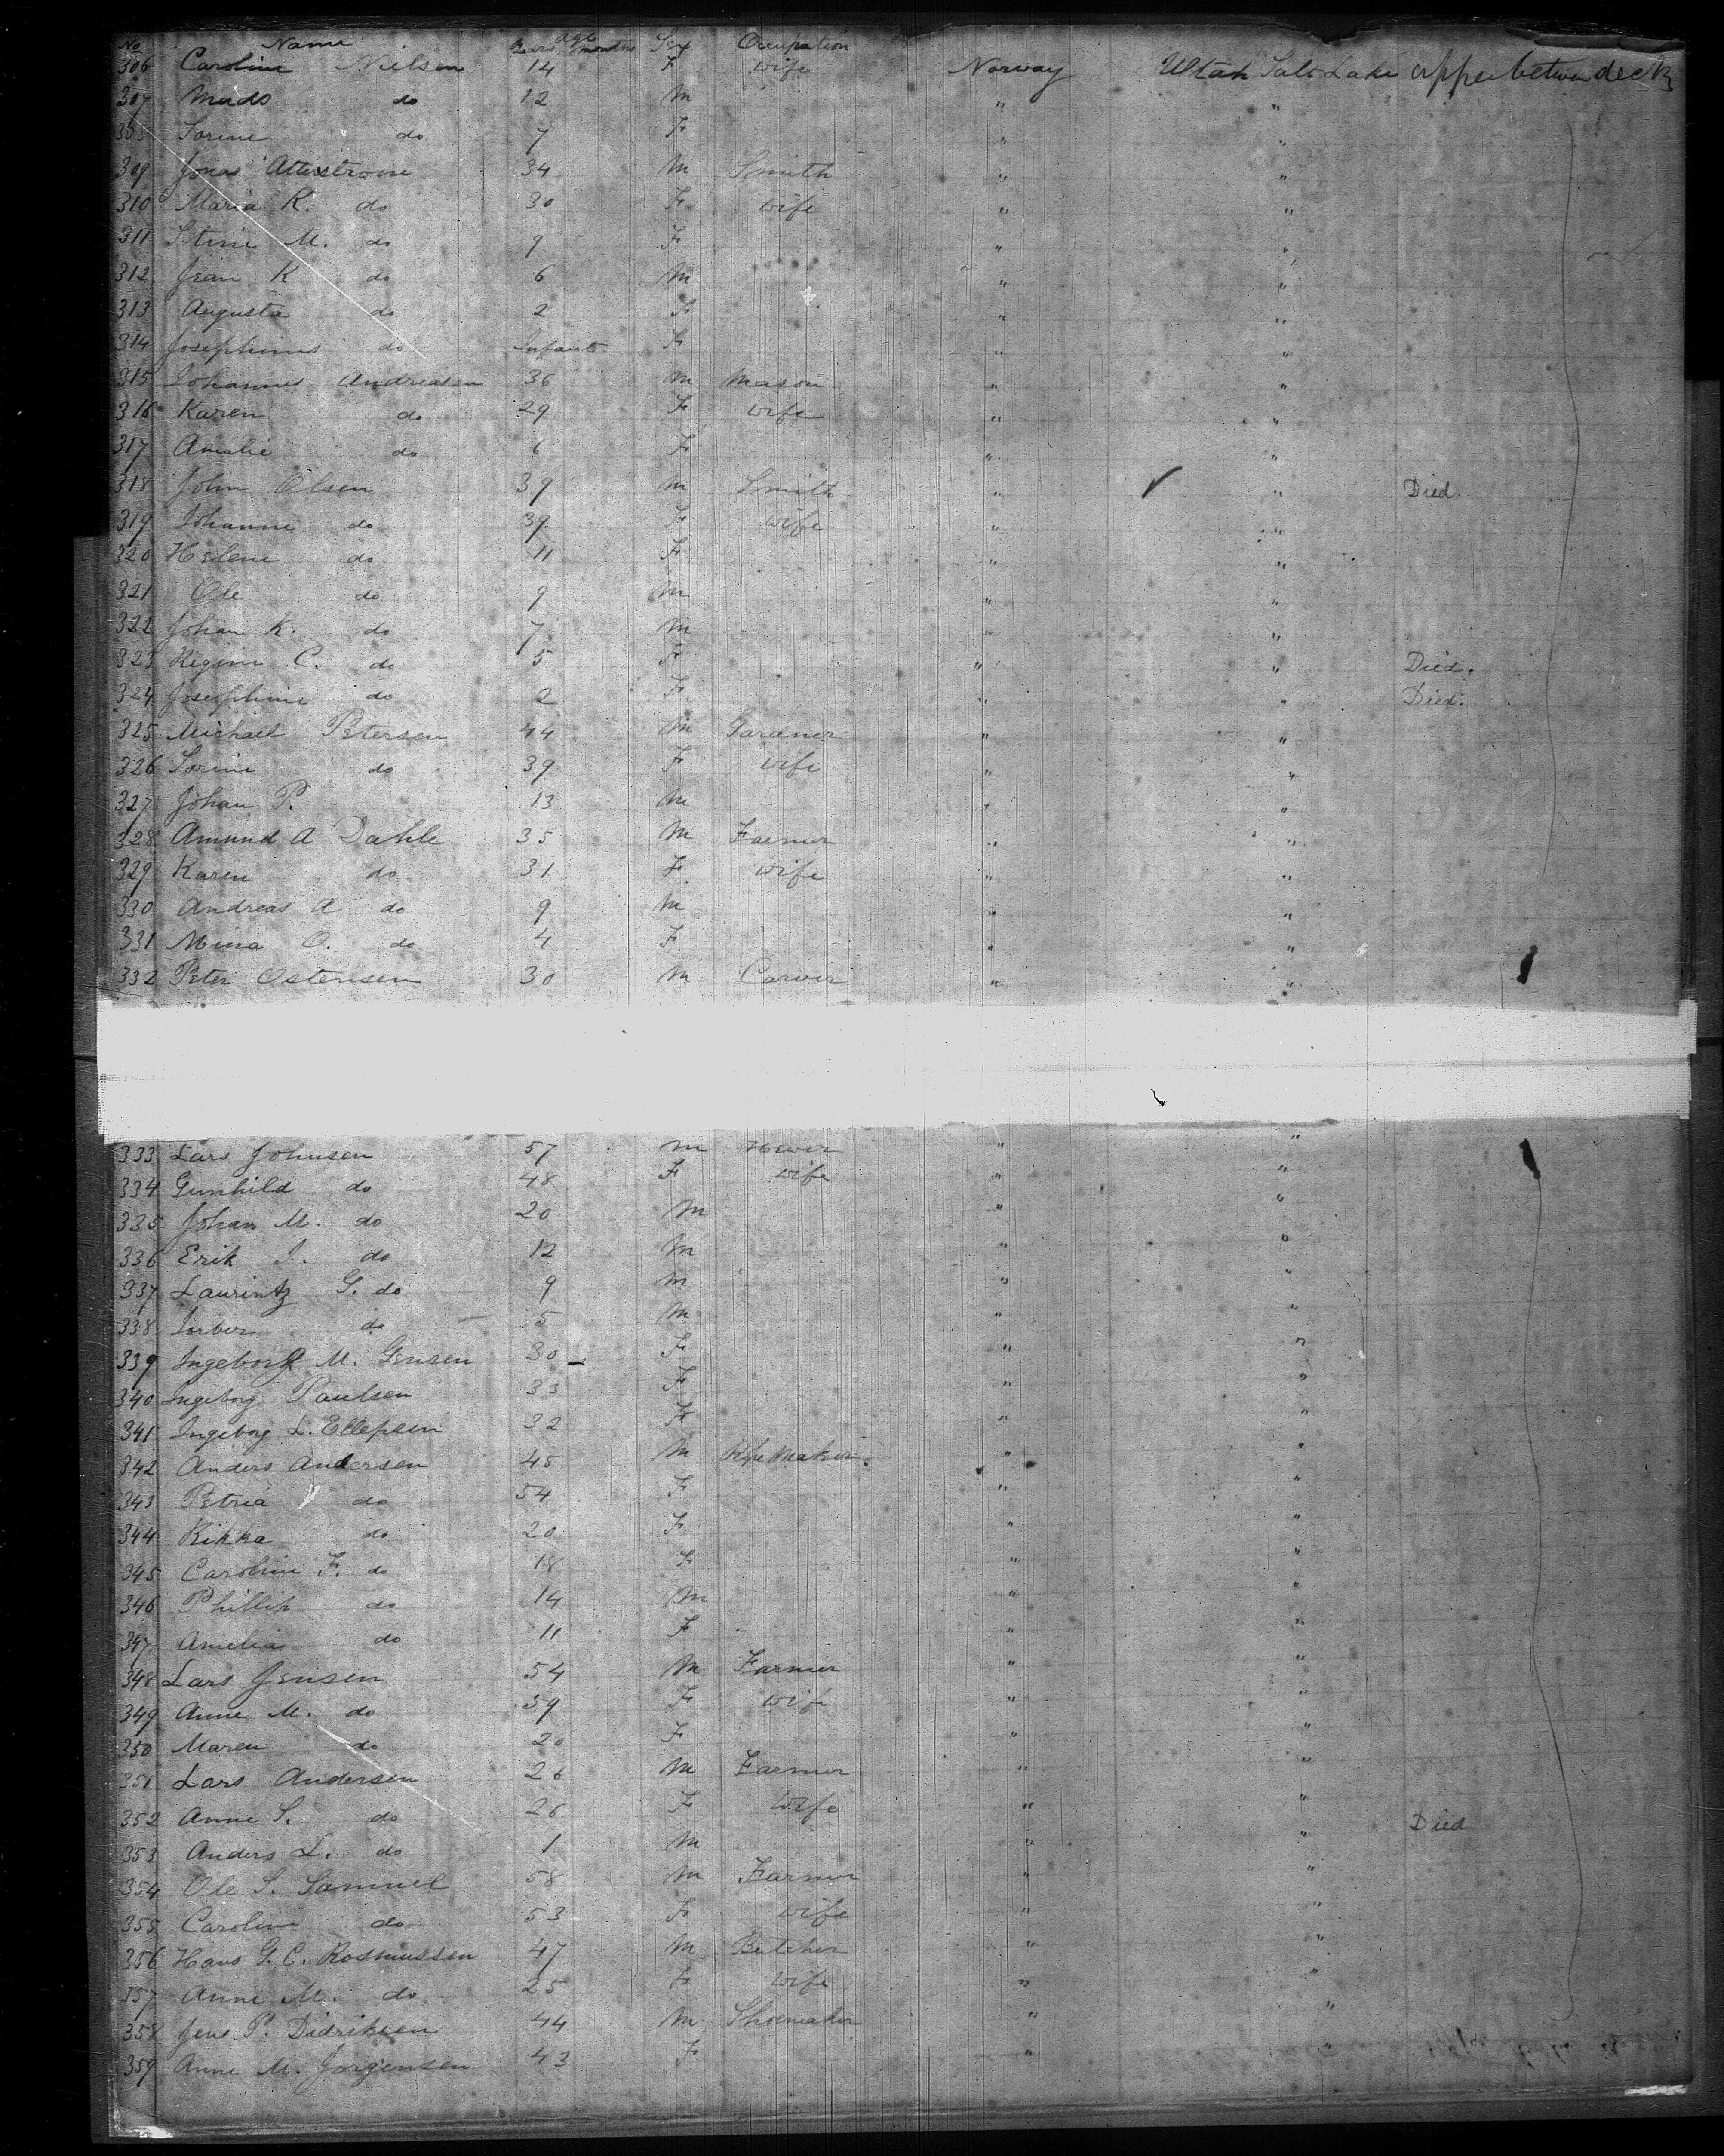 No Name Years age months Sex Occupation
306 Caroline Nielsen 14 F wife Norway Utah Salt Lake upper between decks
307 Mads do 12 M " "
308 Sorine do 7 F " "
309 Jonas 34 M Smith " "
310 Maria K. do 30 F wife " "
311 Stine M. do 9 F " "
312 Jean K do 6 M " "
313 Augusta do 2 F " "
314 do Infant F " "
315 Johannes Andreasen 36 M Mason " "
316 Karen do 29 F wife " "
317 Amalie do 6 F " "
318 John Olsen 39 M Smith " " Died.
319 Johanne do 39 F wife " "
320 Helene do 11 F " "
321 Ole do 9 M " "
322 Johan K. do 7 M " "
323 Regine C. do 5 F " " Died.
324 Josephine do 2 F " " Died.
325 Michael Petersen 44 M Gardner " "
326 Sorine do 39 F wife " "
327 Johan P. 13 M " "
328 Amund A Dahle 35 M Farmer " "
329 Karen do 31 F wife " "
330 Andreas A do 9 M " "
331 Mina O. do 4 F " "
332 Peter Ostensen 30 M Carver " "
333 Lars Johnsen 57 M Hewer " "
334 Gunhild do 48 F wife " "
335 Johan M. do 20 M " "
336 Erik J. do 12 M " "
337 Laurintz G. do 9 M " "
338 do 5 M "
339 Ingeborg M. Jensen 30 F " "
340 Ingeborg Paulsen 33 F " "
341 Ingeborg L. Ellefsen 32 F " "
342 Anders Andersen 45 M Maker " "
343 Petria do 54 F " "
344 Rikka do 20 F " "
345 Caroline F. do 18 F " "
346 Phillip do 14 M " "
347 Amelia do 11 F " "
348 Lars Jensen 54 M Farmer " "
349 Anne M. do 59 F wife " "
350 Maren do 20 F " "
351 Lars Andersen 26 M Farmer " "
352 Anne S. do 26 F wife " "
353 Anders L. do 1 M " " Died
354 Ole S. Samuel 58 M Farmer " "
355 Caroline do 53 F wife " "
356 Hans G. C. Rosmussen 47 M Butcher " "
357 Anne M. do 25 F wife " "
358 Jens P. Didriksen 44 M Shoemaker " "
359 Anne M. Jorgensen 43 F " "